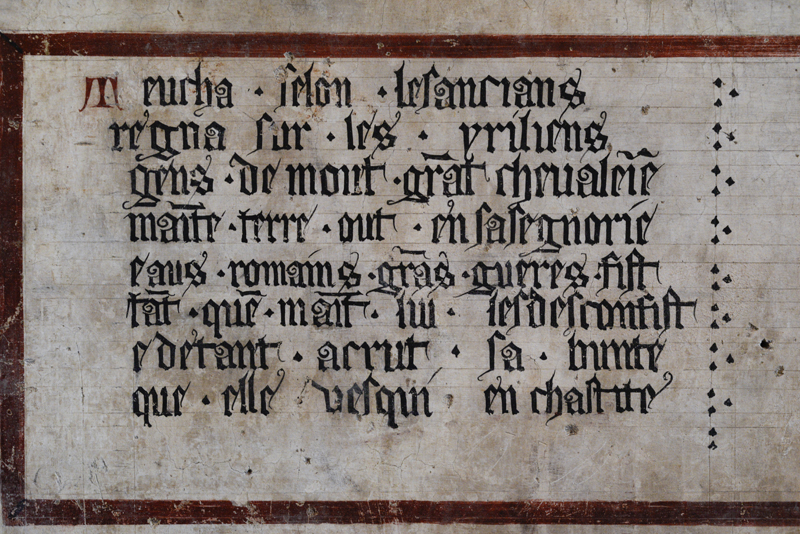 Teucha · selon · lesancians
regna sur · les · yriliens
gens · de mout · grāt cheualeīē
māīte · terre · out · en sasegnorie
e aus · romains · grās · guerēs · fist
tāt · quē · māīt · lui · lesdesconfist
e detant · acrut · sa · bunte
que · elle vesqui en chastite